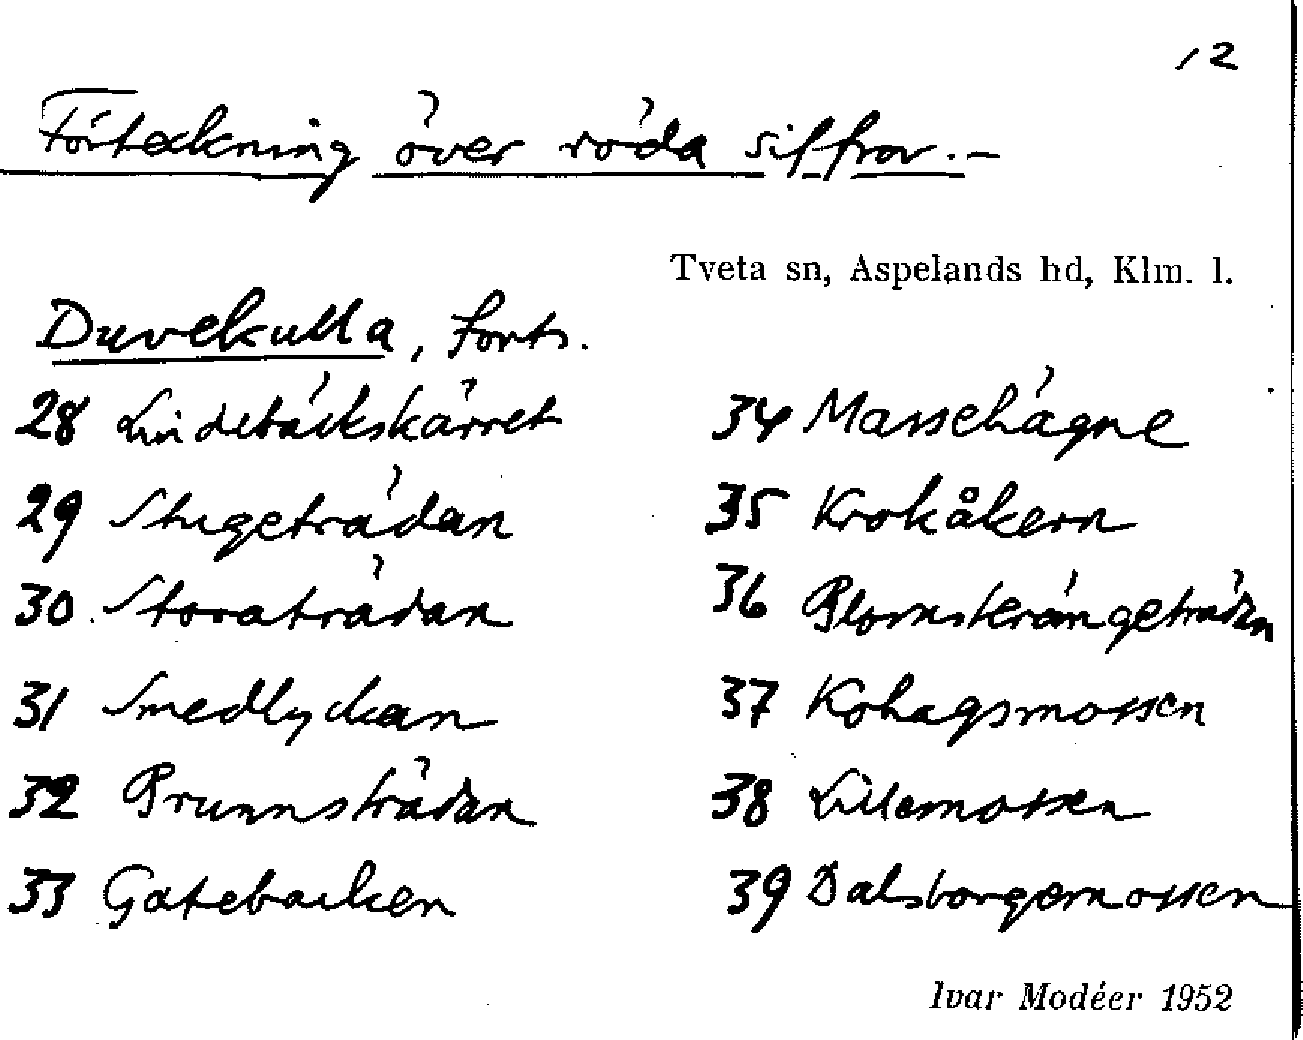 12
Förteckning över röda siffror.-
Tveta sn, Aspelands hd, Klm. l.
Duvekulla, forts.
28 Lindebäckskärret
29 Stugeträdan
30. Storaträdan
31 Smedlyckan
32 Brunnsträdan
33 Gatebacken
34 Massehägne
35 Krokåkern
36 Blomsterängeträdan
37 Kohagsmossen
38 Lillemossen
39 Dalsborgemossen
Ivar Modéer 1952